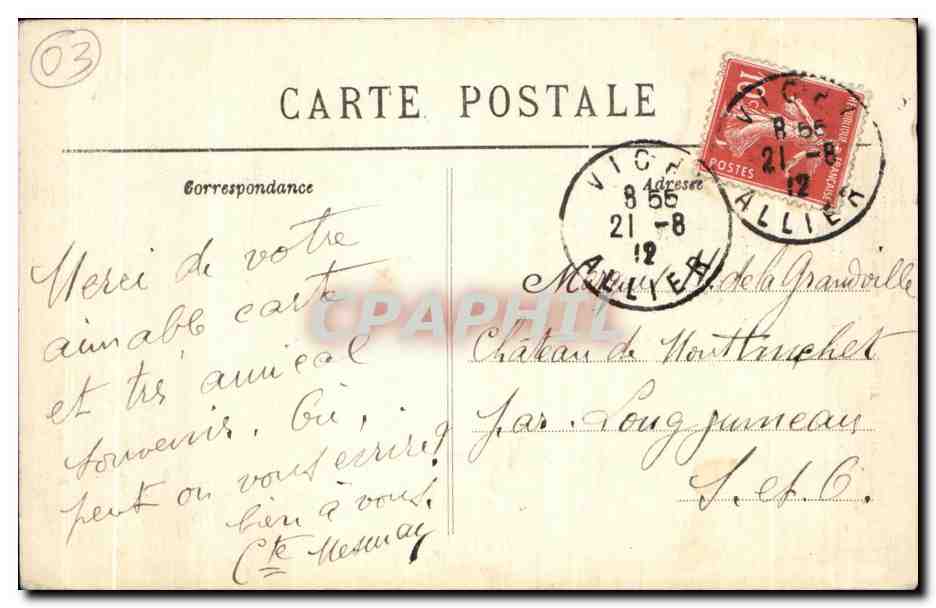 03
CARTE POSTALE
Correspondance
Adresse
10c
POSTES
REPUBLIQUE FRANÇAISE
VICHY
8 55
21 -8
12
ALLIER
VICHY
8 55
21 -8
12
ALLIER
Merci de votre
aimable carte
et très amical
souvenir. Où,
peut on vous écrire?
bien à vous.
Cte
de la Grandville
Château de
par Longjumeau
S. et O.
CPAPHIL